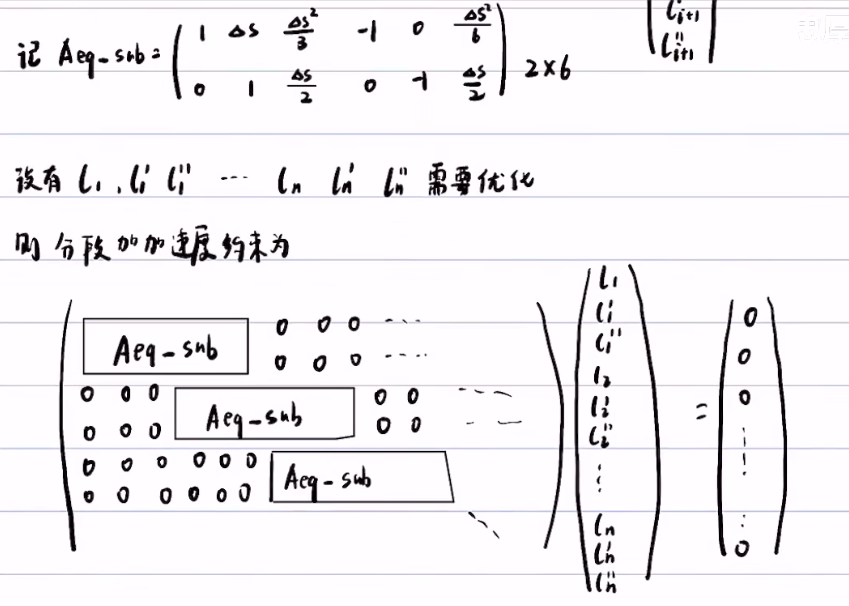 l_{i+1}
l''_{i+1}
记 Aeq-sub = ( 1 Δs Δs²/3 -1 0 Δs²/6
0 1 Δs/2 0 -1 Δs/2 ) 2×6
设有 l₁, l₁' l₁'' ... lₙ lₙ' lₙ'' 需要优化
则 分段加加速度约束为
Aeq-sub 0 0 0 ...
0 0 0 ...
0 0 0 Aeq-sub 0 0 ...
0 0 0 0 0 ...
0 0 0 0 0 0 Aeq-sub
0 0 0 0 0 0
l₁
l₁'
l₁''
l₂
l₂'
l₂''
⋮
lₙ
lₙ'
lₙ''
=
0
0
0
⋮
0